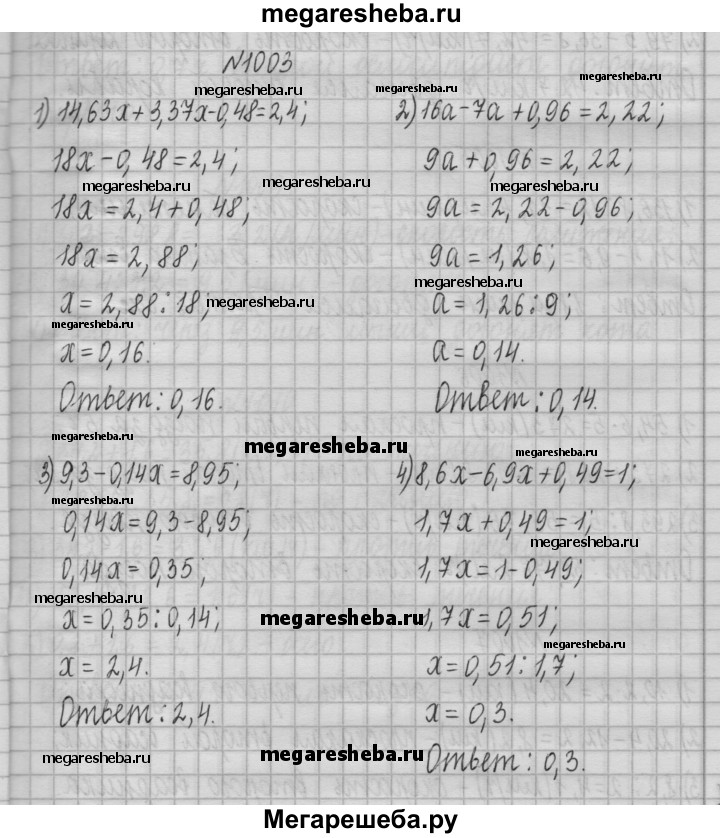 megaresheba.ru
N1003
megaresheba.ru megaresheba.ru
1) 14,63x+3,37x-0,48=2,4;
18x-0,48=2,4;
megaresheba.ru megaresheba.ru
18x=2,4+0,48;
18x=2,88;
x=2,88:18; megaresheba.ru
megaresheba.ru
x=0,16.
Ответ: 0,16.
2) 16a-7a+0,96=2,22;
9a+0,96=2,22;
megaresheba.ru
9a=2,22-0,96;
9a=1,26;
megaresheba.ru
a=1,26:9;
a=0,14.
Ответ: 0,14.
megaresheba.ru
megaresheba.ru
3) 9,3-0,14x=8,95;
megaresheba.ru
0,14x=9,3-8,95;
0,14x=0,35;
megaresheba.ru
x=0,35:0,14;
x=2,4.
Ответ: 2,4.
megaresheba.ru
megaresheba.ru
4) 8,6x-6,9x+0,49=1;
1,7x+0,49=1;
megaresheba.ru
1,7x=1-0,49;
megaresheba.ru
1,7x=0,51;
x=0,51:1,7;
x=0,3.
megaresheba.ru
Ответ: 0,3.
Мегарешеба.ру